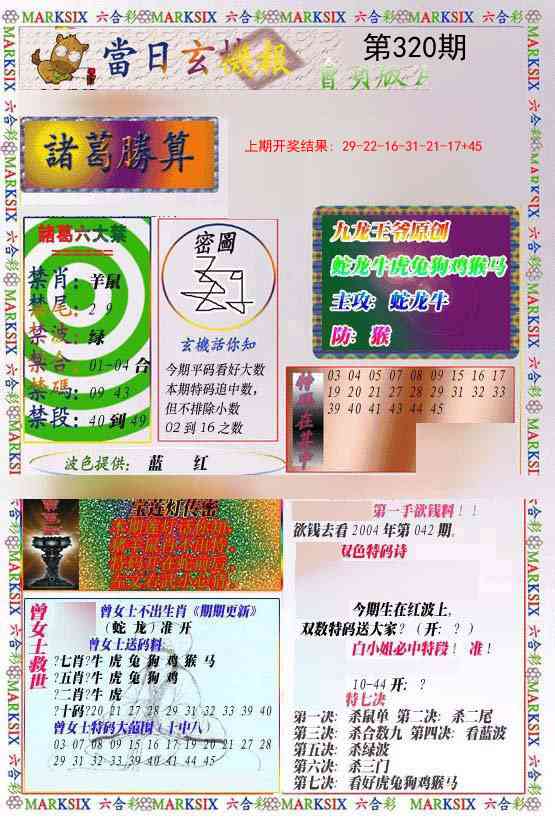 MARKSIX 六合彩 MARKSIX 六合彩 MARKSIX 六合彩 MARKSIX 六合彩 MARKSIX
當日玄機報
第320期
諸葛勝算
上期开奖结果: 29-22-16-31-21-17+45
諸葛六大禁
禁肖: 羊鼠
禁尾: 2 9
禁波: 绿
禁合: 01-04 合
禁碼: 09 43
禁段: 40 到 49
密圖
玄機活你知
今期平码看好大数
本期特码追中数,
但不排除小数
02 到 16 之数
九龙王爷原创
蛇龙牛虎兔狗鸡猴马
主攻: 蛇龙牛
防: 猴
03 04 05 07 08 09 15 16 17
19 20 21 27 28 29 31 32 33
39 40 41 43 44 45
波色提供: 蓝 红
宝莲灯传密
第一手欲钱料! !
欲钱去看 2004 年第 042 期。
双色特码诗
今期生在红波上,
双数特码送大家? (开: ? )
白小姐必中特段! 准!
10-44 开: ?
特七决
第一决: 杀鼠单 第二决: 杀二尾
第三决: 杀合数九 第四决: 看蓝波
第五决: 杀绿波
第六决: 杀三门
第七决: 看好虎兔狗鸡猴马
曾女士救世
曾女士不出生肖《期期更新》
(蛇 龙) 准 开
曾女士送码料:
?七肖?牛 虎 兔 狗 鸡 猴 马
?五肖?牛 虎 兔 狗 鸡
?二肖?牛 虎
?十码?20 21 27 28 31 32 33 39 40
曾女士特码大范围 (十中八)
03 07 08 09 15 16 17 19 20 21 27 28
29 31 32 33 39 40 41 43 44 45
MARKSIX 六合彩 MARKSIX 六合彩 MARKSIX 六合彩 MARKSIX 六合彩 MARKSIX